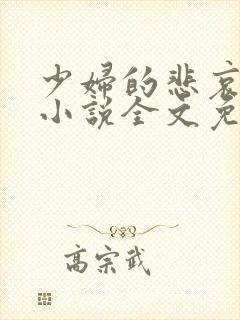 少婦的悲哀
小說全文免
高宗武